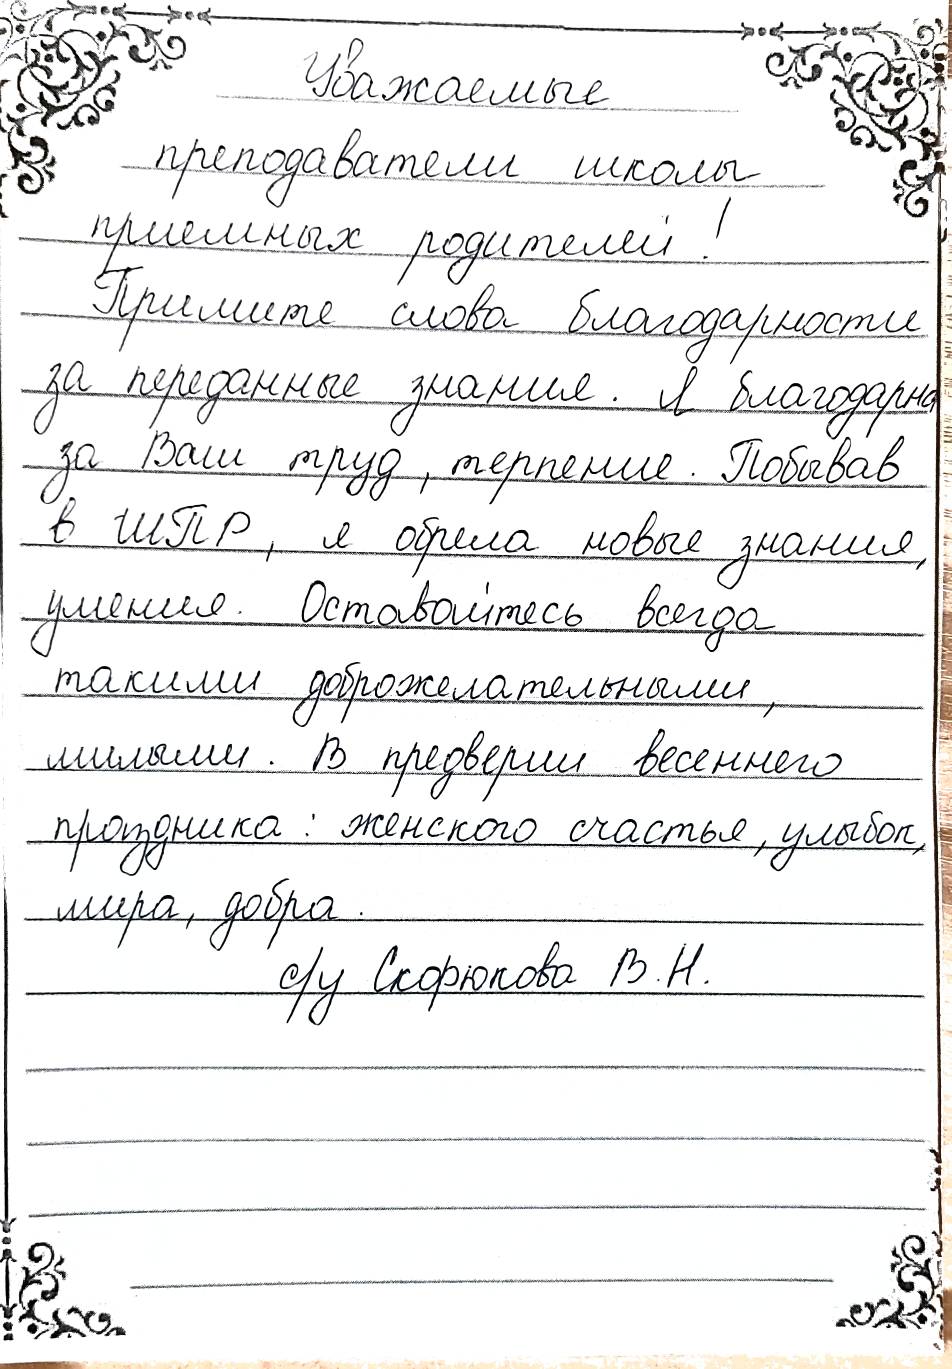 Уважаемые
преподаватели школы
приемных родителей!
Примите слова благодарности
за переданные знания. Я благодарна
за Ваш труд, терпение. Побывав
в ШПР, я обрела новые знания,
умения. Оставайтесь всегда
такими доброжелательными,
милыми. В предверии весеннего
праздника: женского счастья, улыбок,
мира, добра.
с/у Скорюкова В.Н.